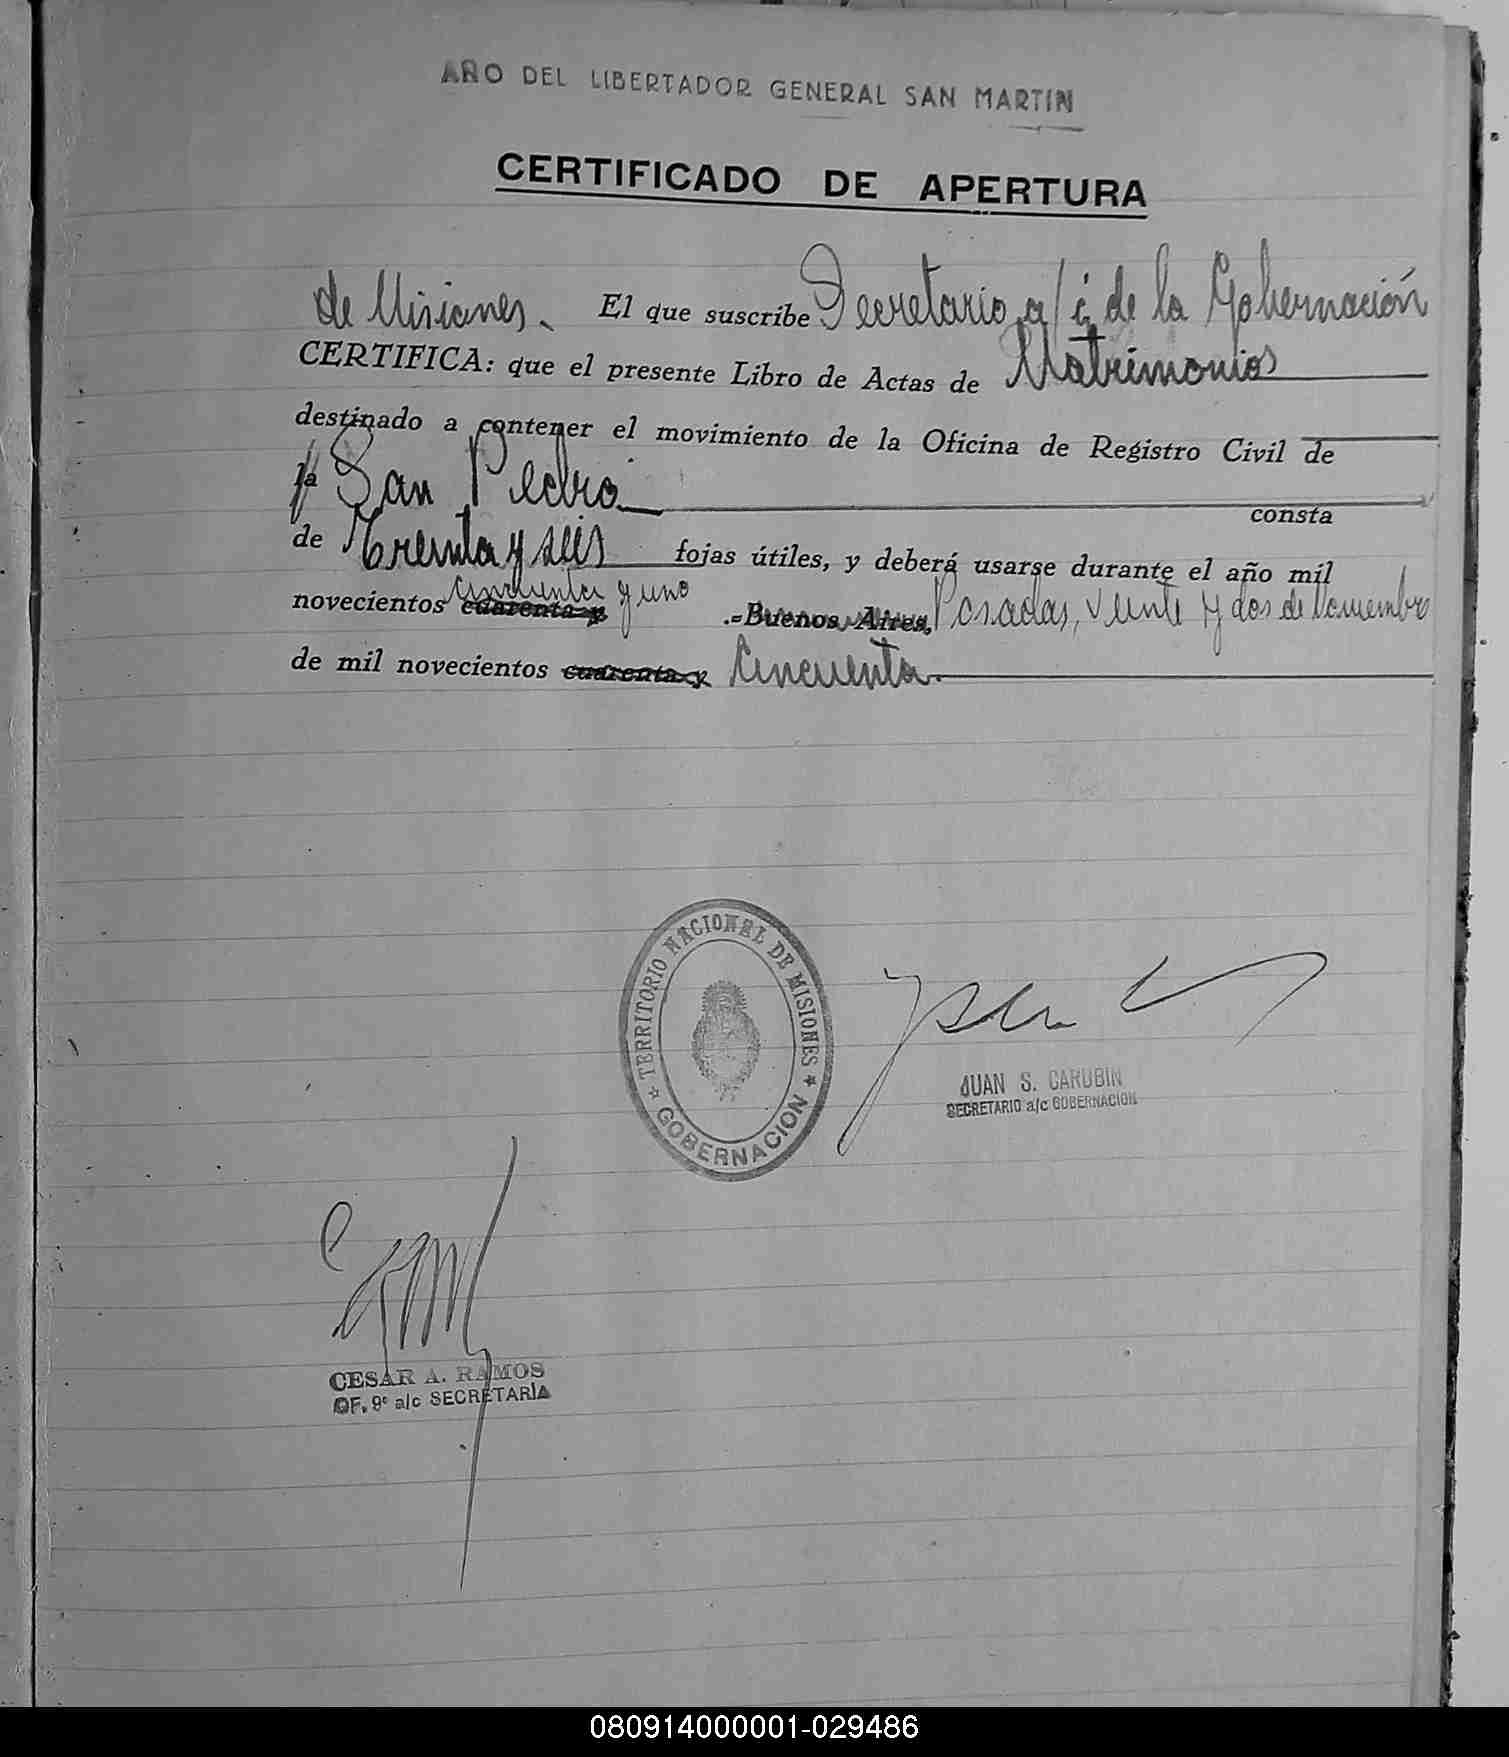 AÑO DEL LIBERTADOR GENERAL SAN MARTIN
CERTIFICADO DE APERTURA
de Misiones. El que suscribe Secretario a/c de la Gobernación
CERTIFICA: que el presente Libro de Actas de Matrimonios
destinado a contener el movimiento de la Oficina de Registro Civil de
San Pedro consta
de Treinta y seis fojas útiles, y deberá usarse durante el año mil
novecientos cuarenta y cincuenta y uno .-Buenos Aires, Posadas, veinte y dos de Noviembre
de mil novecientos cuarenta y Cincuenta.
TERRITORIO NACIONAL DE MISIONES
GOBERNACION
JUAN S. CARUBIN
SECRETARIO a/c GOBERNACION
CESAR A. RAMOS
OF. 9º a/c SECRETARIA
080914000001-029486